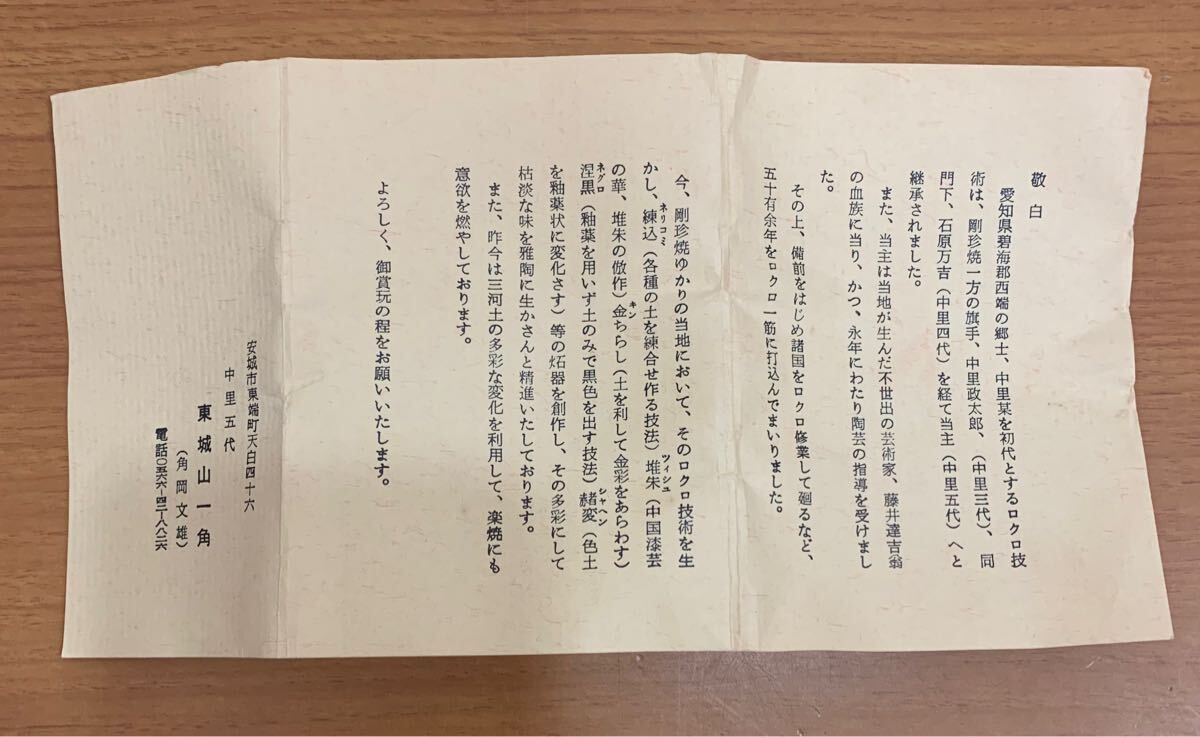 敬白
愛知県碧海郡西端の郷士、中里某を初代とするロクロ技
術は、剛珍焼一方の旗手、中里政太郎、（中里三代）、同
門下、石原万吉（中里四代）を経て当主（中里五代）へと
継承されました。
また、当主は当地が生んだ不世出の芸術家、藤井達吉翁
の血族に当り、かつ、永年にわたり陶芸の指導を受けまし
た。
その上、備前をはじめ諸国をロクロ修業して廻るなど、
五十有余年をロクロ一筋に打込んでまいりました。
今、剛珍焼ゆかりの当地において、そのロクロ技術を生
かし、練込（各種の土を練合せ作る技法）堆朱（中国漆芸
ネリコミ ツィシュ
の華、堆朱の倣作）金ちらし（土を利して金彩をあらわす）
キン
涅黒（釉薬を用いず土のみで黒色を出す技法）赭変（色土
ネグロ シャヘン
を釉薬状に変化さす）等の炻器を創作し、その多彩にして
枯淡な味を雅陶に生かさんと精進いたしております。
また、昨今は三河土の多彩な変化を利用して、楽焼にも
意欲を燃やしております。
よろしく、御賞玩の程をお願いいたします。
安城市東端町天白四十六
中里五代
東城山一角
（角岡文雄）
電話〇五六六-四一-八八二六